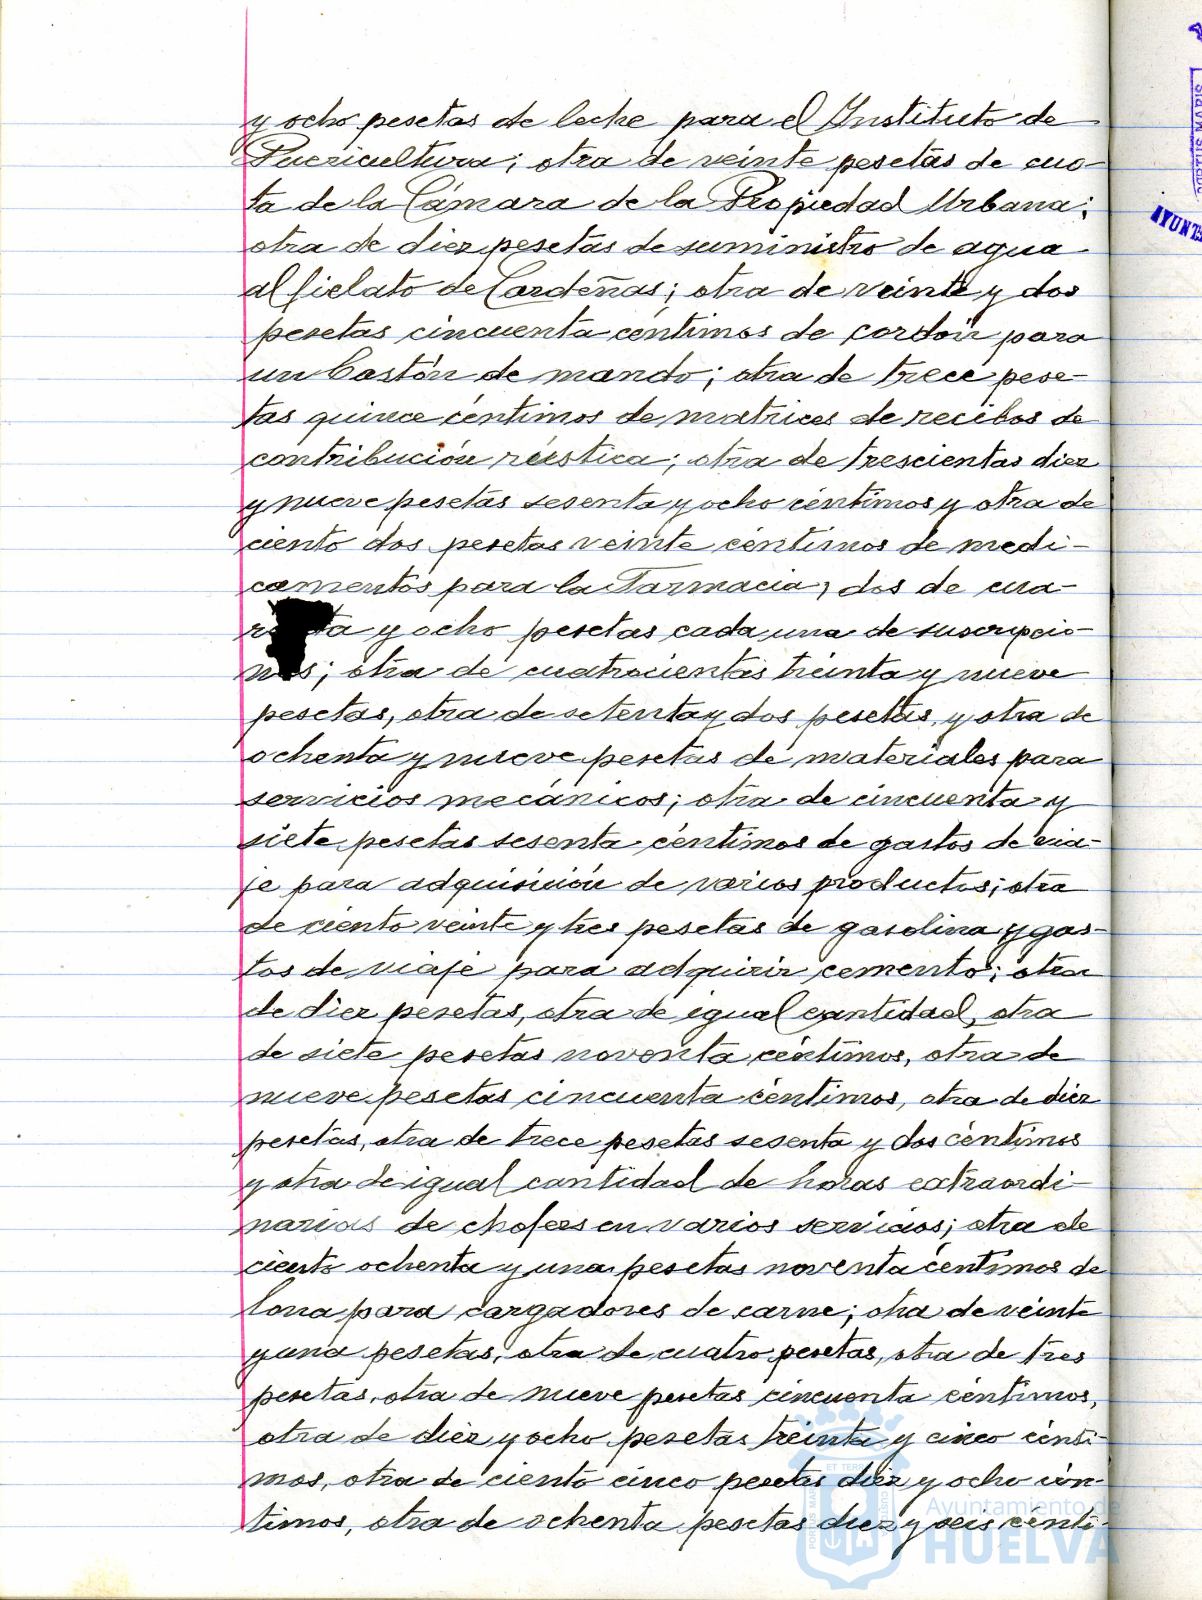 y ocho pesetas de leche para el Instituto de
Puericultura; otra de veinte pesetas de cuo-
ta de la Cámara de la Propiedad Urbana;
otra de diez pesetas de suministro de agua
al fielato de Cardeñas; otra de veinte y dos
pesetas cincuenta céntimos de cordón para
un bastón de mando; otra de trece pese-
tas quince céntimos de matrices de recibos de
contribución rústica; otra de trescientas diez
y nueve pesetas sesenta y ocho céntimos y otra de
ciento dos pesetas veinte céntimos de medi-
camentos para la Farmacia, dos de cua-
y ocho pesetas cada una de suscripcio-
nes; otra de cuatrocientas treinta y nueve
pesetas, otra de setenta y dos pesetas, y otra de
ochenta y nueve pesetas de materiales para
servicios mecánicos; otra de cincuenta y
siete pesetas sesenta céntimos de gastos de via-
je para adquisición de varios productos; otra
de ciento veinte y tres pesetas de gasolina y gas-
tos de viaje para adquirir cemento; otra
de diez pesetas, otra de igual cantidad, otra
de siete pesetas noventa céntimos, otra de
nueve pesetas cincuenta céntimos, otra de diez
pesetas, otra de trece pesetas sesenta y dos céntimos
y otra de igual cantidad de horas extraordi-
narias de chofers en varios servicios; otra de
ciento ochenta y una pesetas noventa céntimos de
lona para cargadores de carne; otra de veinte
y una pesetas, otra de cuatro pesetas, otra de tres
pesetas, otra de nueve pesetas cincuenta céntimos,
otra de diez y ocho pesetas treinta y cinco cénti-
mos, otra de ciento cinco pesetas diez y ocho cén-
timos, otra de ochenta pesetas diez y seis cénti-
Ayuntamiento de
HUELVA